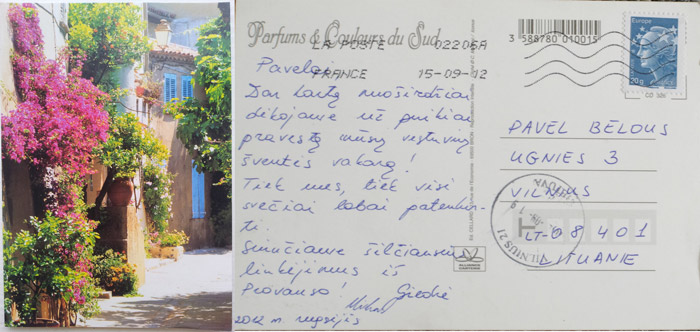 Parfums & Couleurs du Sud
LA POSTE 02206A
FRANCE 15-09-12
3 588780 010015
Europe
20g
Pavelai,
Dar kartą nuoširdžiai
dėkojame už puikiai
pravestą mūsų vestuvių
šventės vakarą!
Tiek mes, tiek visi
svečiai labai patenkin-
ti.
Siunčiame šilčiausius
linkėjimus iš
Provanso!
Giedrė
2012 m. rugsėjis
PAVEL BELOUS
UGNIES 3
VILNIUS
LT-08401
LITUANIE
VILNIUS 21
LIETUVA